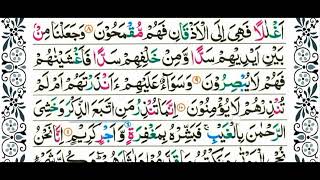 اَغْلٰلًا فَهِيَ اِلَى الْاَذْقَانِ فَهُمْ مُّقْمَحُوْنَ ۸ وَجَعَلْنَا مِنْۢ
بَيْنِ اَيْدِيْهِمْ سَدًّا وَّمِنْ خَلْفِهِمْ سَدًّا فَاَغْشَيْنٰهُمْ
فَهُمْ لَا يُبْصِرُوْنَ ۹ وَسَوَآءٌ عَلَيْهِمْ ءَاَنْذَرْتَهُمْ اَمْ لَمْ
تُنْذِرْهُمْ لَا يُؤْمِنُوْنَ ۱۰ اِنَّمَا تُنْذِرُ مَنِ اتَّبَعَ الذِّكْرَ وَخَشِيَ
الرَّحْمٰنَ بِالْغَيْبِ ۚ فَبَشِّرْهُ بِمَغْفِرَةٍ وَّاَجْرٍ كَرِيْمٍ ۱۱ اِنَّا نَحْنُ